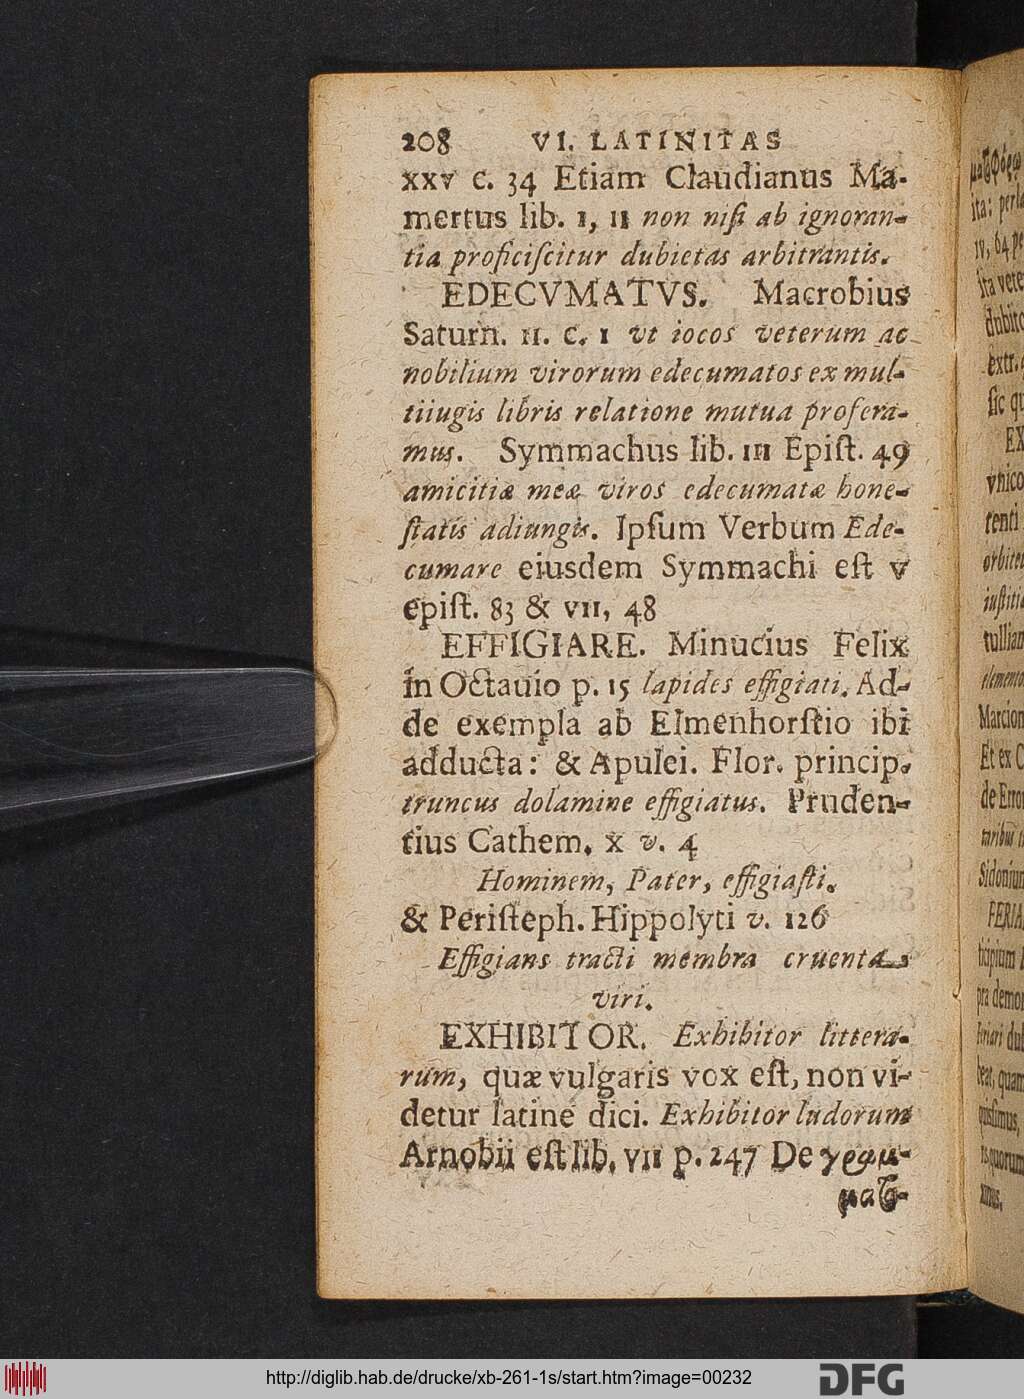 208 VI. LATINITAS
xxv c. 34 Etiam Claudianus Ma-
mertus lib. I, II non niſi ab ignoran-
tia proficiſcitur dubietas arbitrantis.
EDECVMATVS. Macrobius
Saturn. II. C. I vt iocos veterum ac
nobilium virorum edecumatos ex mul-
tiiugis libris relatione mutua profera-
mus. Symmachus lib. III Epiſt. 49
amicitiæ meæ viros edecumatæ hone-
ſtatis adiungis. Ipſum Verbum Ede-
cumare eiusdem Symmachi eſt v
epiſt. 83 & VII, 48
EFFIGIARE. Minucius Felix
in Octauio p. 15 lapides effigiati. Ad-
de exempla ab Elmenhorſtio ibi
adducta: & Apulei. Flor. princip.
truncus dolamine effigiatus. Pruden-
tius Cathem. x v. 4
Hominem, Pater, effigiaſti.
& Periſteph. Hippolyti v. 126
Effigians tracti membra cruenta
viri.
EXHIBITOR. Exhibitor littera-
rum, quæ vulgaris vox eſt, non vi-
detur latine dici. Exhibitor ludorum
Arnobii eſt lib. VII p. 247 De γραμ-
ματο-
http://diglib.hab.de/drucke/xb-261-1s/start.htm?image=00232
DFG